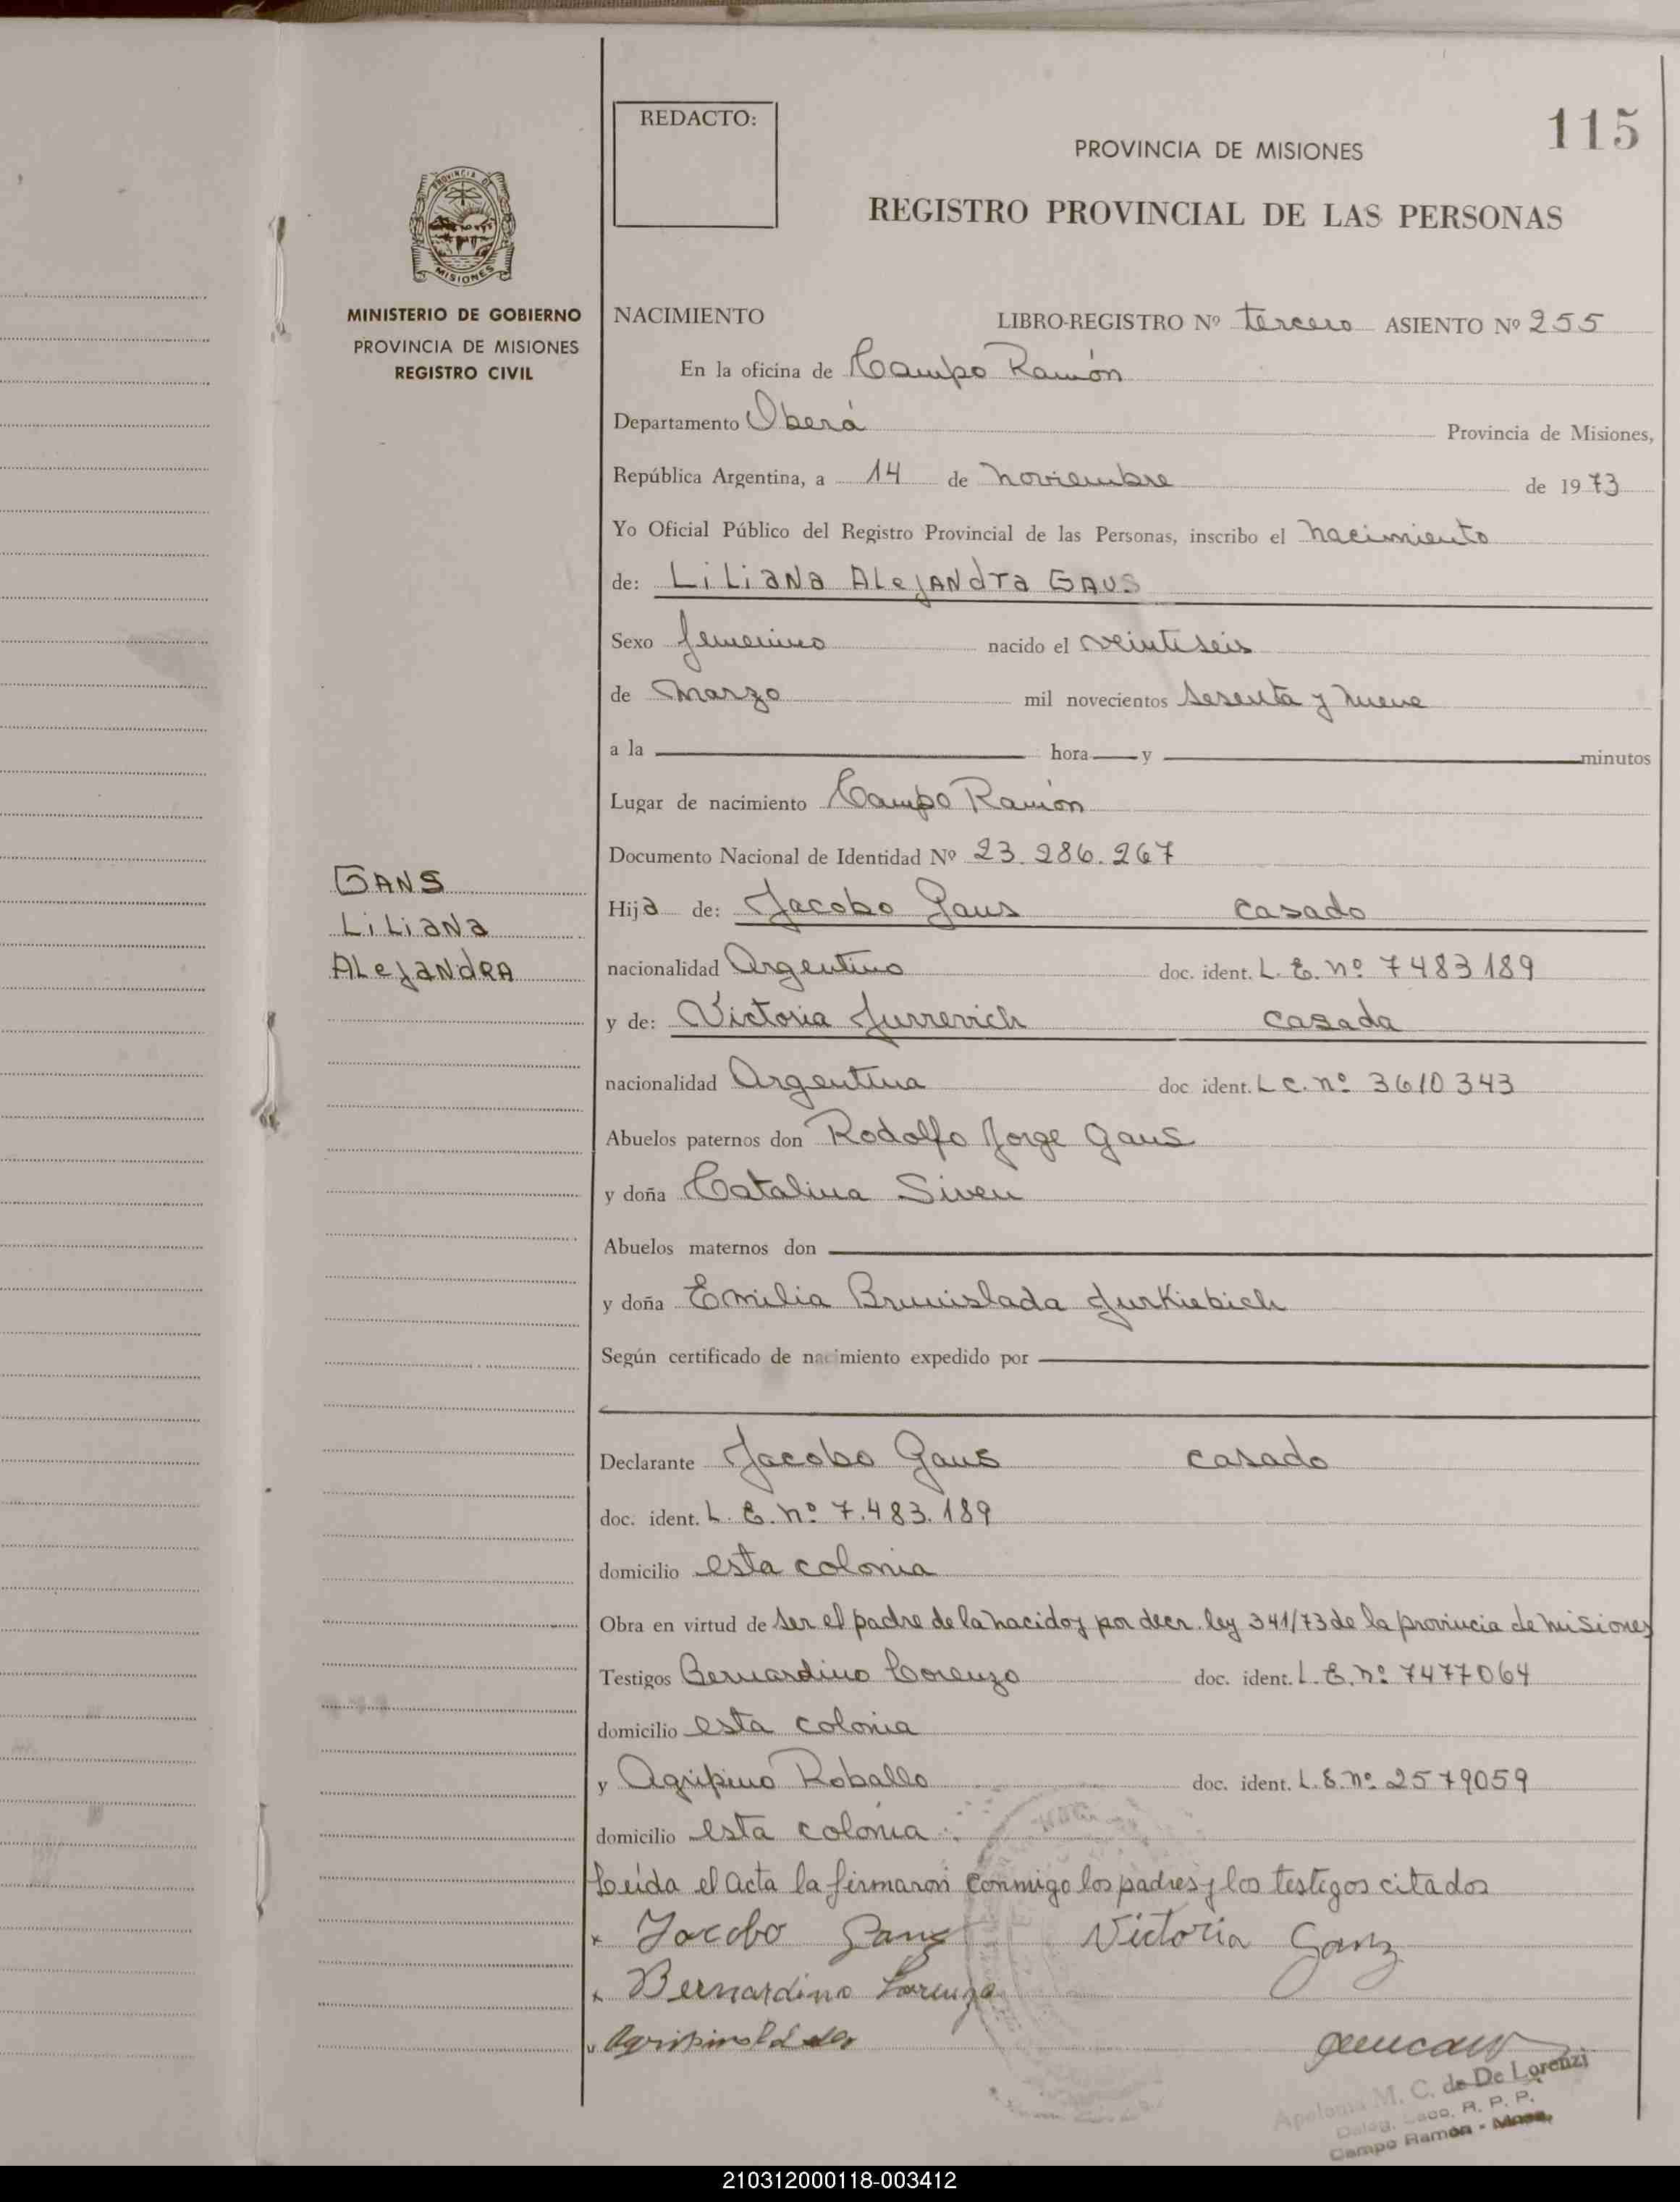 115
REDACTO:
PROVINCIA DE MISIONES
REGISTRO PROVINCIAL DE LAS PERSONAS
PROVINCIA DE
MISIONES
MINISTERIO DE GOBIERNO
PROVINCIA DE MISIONES
REGISTRO CIVIL
NACIMIENTO LIBRO-REGISTRO Nº tercero ASIENTO Nº 255
En la oficina de Campo Ramón
Departamento Oberá Provincia de Misiones,
República Argentina, a 14 de noviembre de 1973
Yo Oficial Público del Registro Provincial de las Personas, inscribo el nacimiento
de: LiLiana ALejANdra GAUS
Sexo femenino nacido el veintiseis
de marzo mil novecientos sesenta y nueve
a la hora y minutos
Lugar de nacimiento Campo Ramón
Documento Nacional de Identidad Nº 23.286.267
GANS
LiLiaNa
ALejaNdRA
Hija de: Jacobo Gaus casado
nacionalidad Argentino doc. ident. L. E. nº 7483189
y de: Victoria Jurrevich casada
nacionalidad Argentina doc ident. L C. nº 3610343
Abuelos paternos don Rodolfo Jorge Gaus
y doña Catalina Siven
Abuelos maternos don
y doña Emilia Brunislada Jurkiebich
Según certificado de nacimiento expedido por
Declarante Jacobo Gaus casado
doc. ident. L. E. nº 7.483.189
domicilio esta colonia
Obra en virtud de ser el padre de la nacida y por decr. ley 341/73 de la provincia de misiones
Testigos Bernardino Lorenzo doc. ident. L. E. nº 7477064
domicilio esta colonia
y Agripino Roballo doc. ident. L. E. nº 2579059
domicilio esta colonia
Leída el acta la firmaron conmigo los padres y los testigos citados
x Jacobo Gans Victoria Ganz
x Bernardino Lorenzo
Apolonia M. C. de De Lorenzi
R. P. P.
Campo Ramón - Mnes.
210312000118-003412